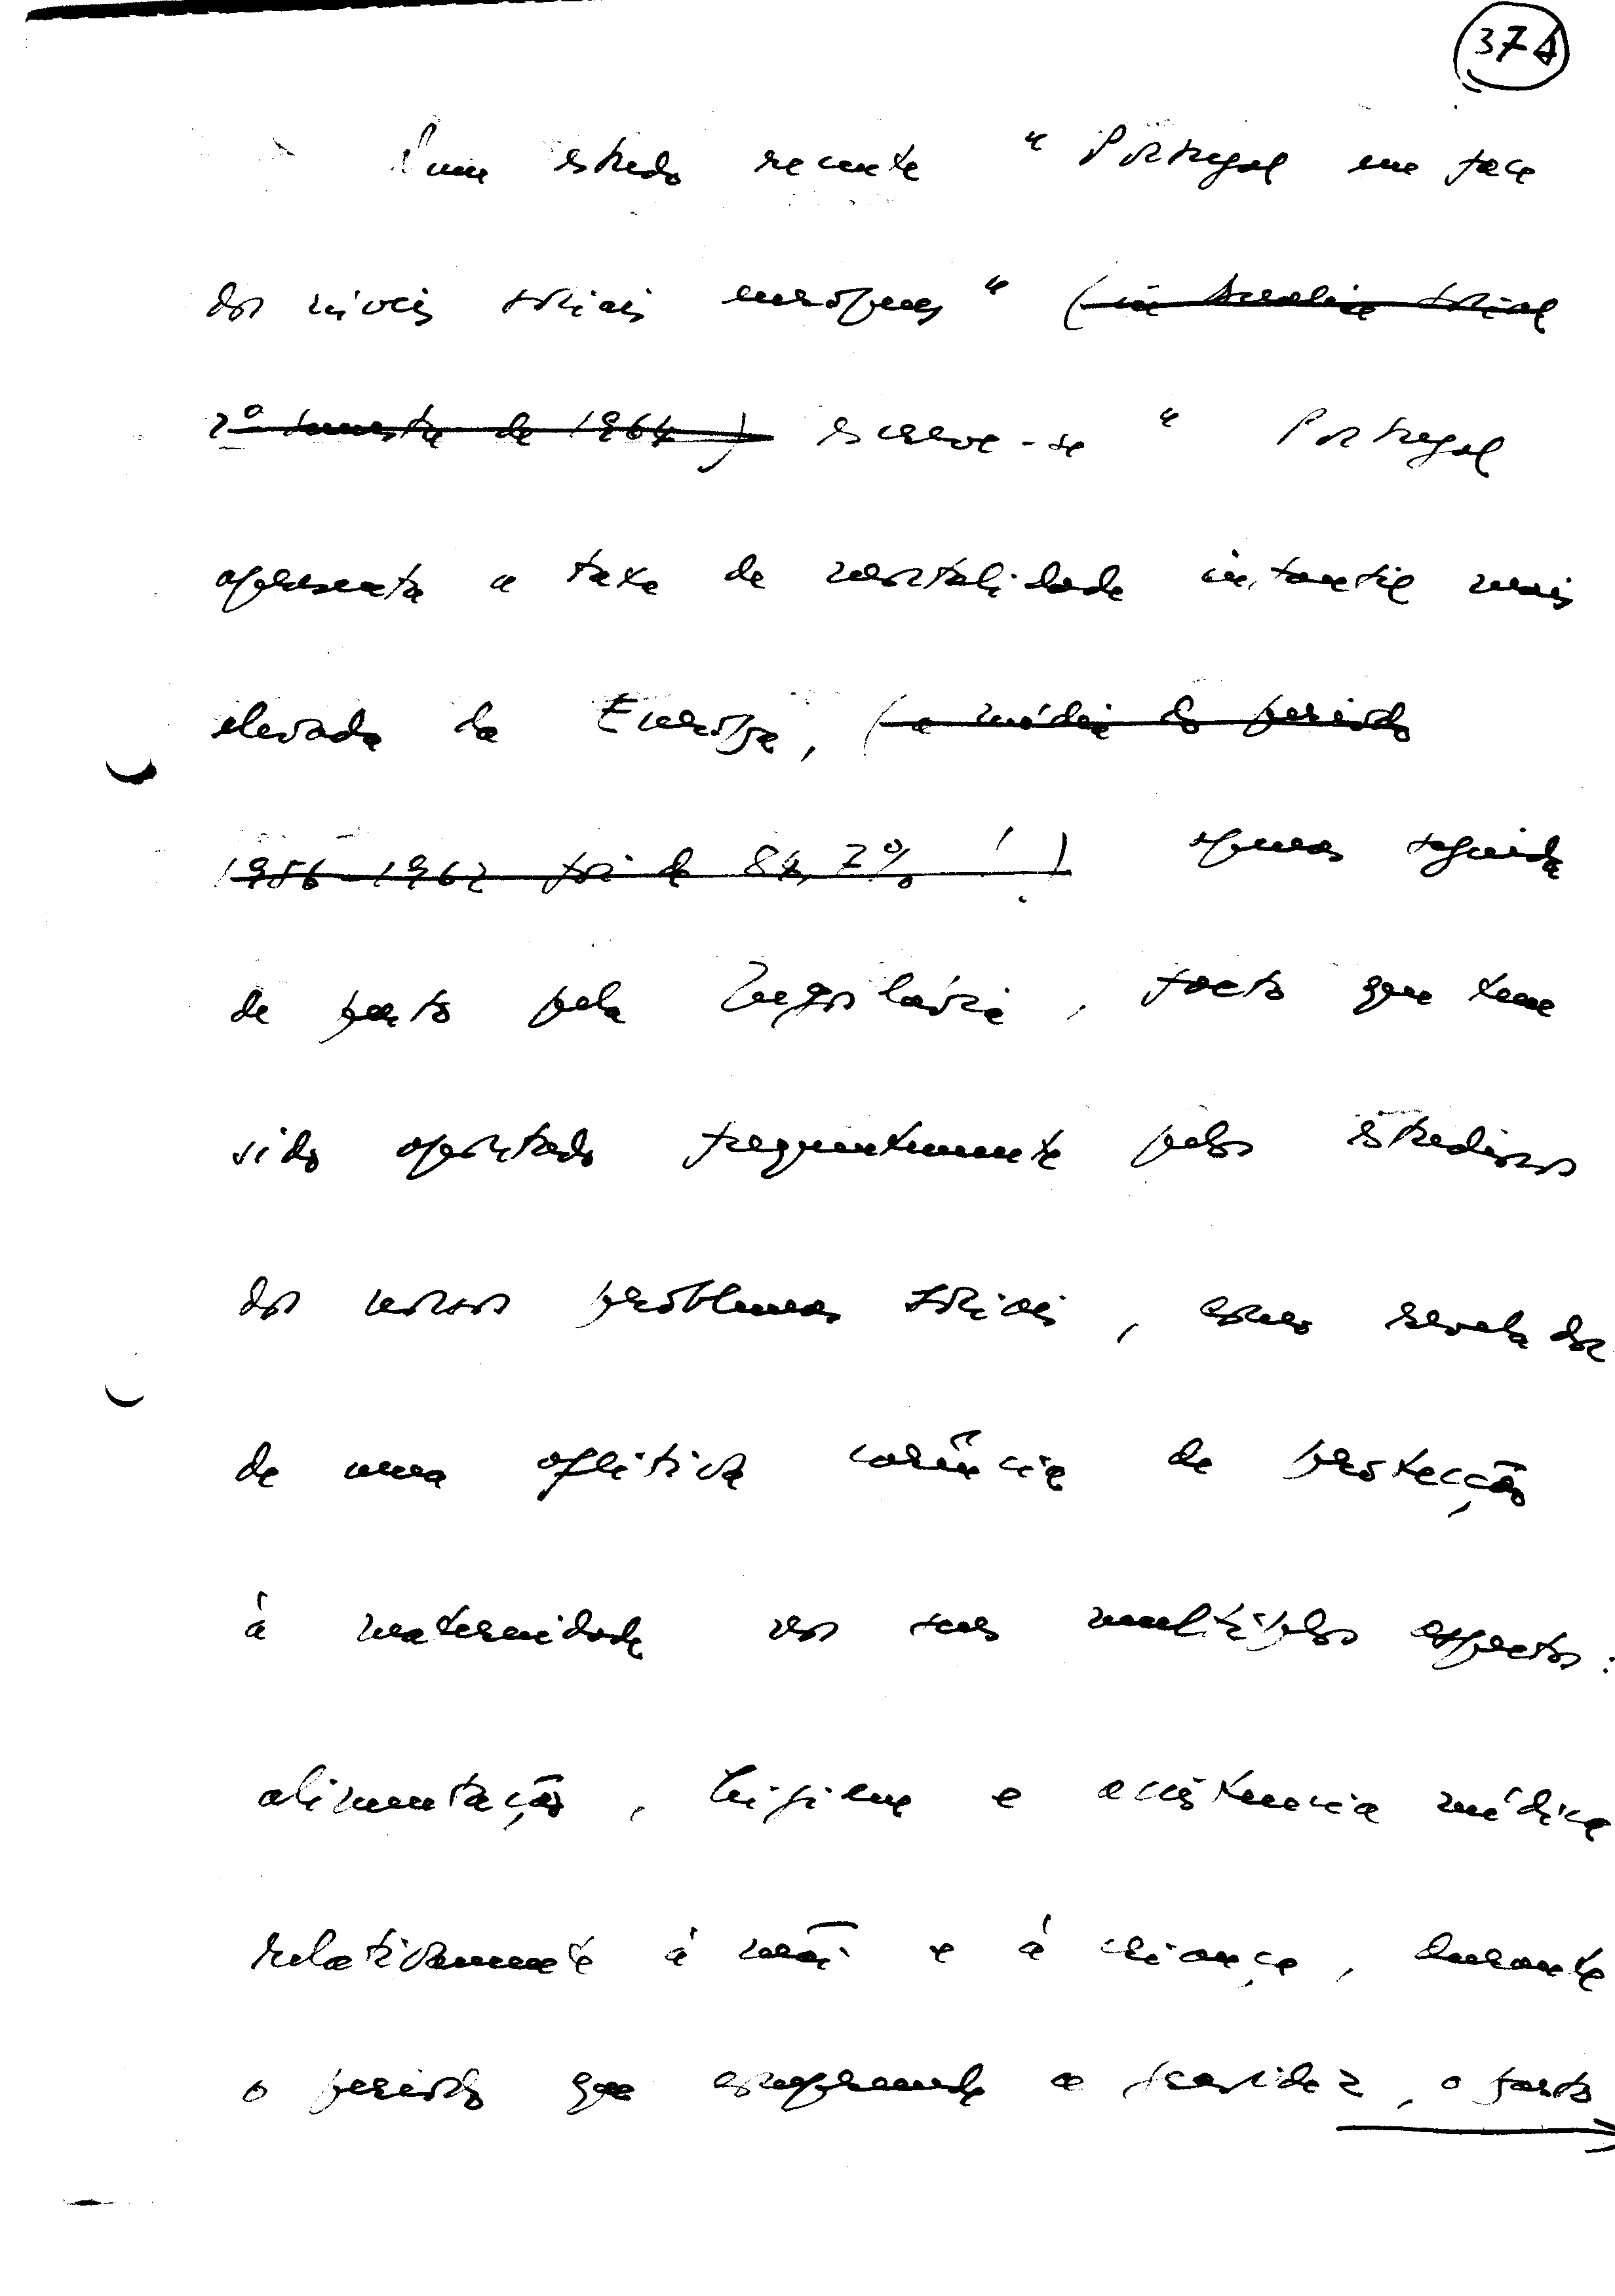 37A
Num estudo recente "Portugal em face
dos níveis sociais europeus" (in Análise Social
2º semestre de 1964) escreve-se "Portugal
apresenta a taxa de mortalidade infantil mais
elevada da Europa, (a média do período
1956-1962 foi de 84,7% !) apenas seguida
de perto pela Jugoslávia, facto que tem
sido apontado frequentemente pelos estudiosos
dos nossos problemas sociais, como revelador
de uma aflitiva carência de protecção
à maternidade nos seus multíplos aspectos:
alimentação, higiene e assistencia médica
relativamente à mãi e à criança, durante
o período que compreende a gravidez, o parto